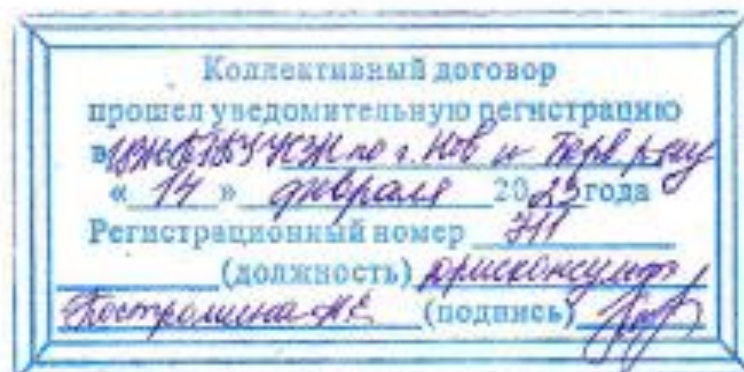 Коллективный договор
прошел уведомительную регистрацию
в по г. Нов и Терв р-ну
« 14 » февраля 2023 года
Регистрационный номер 711
(должность) юрисконсульт
Костромина (подпись)